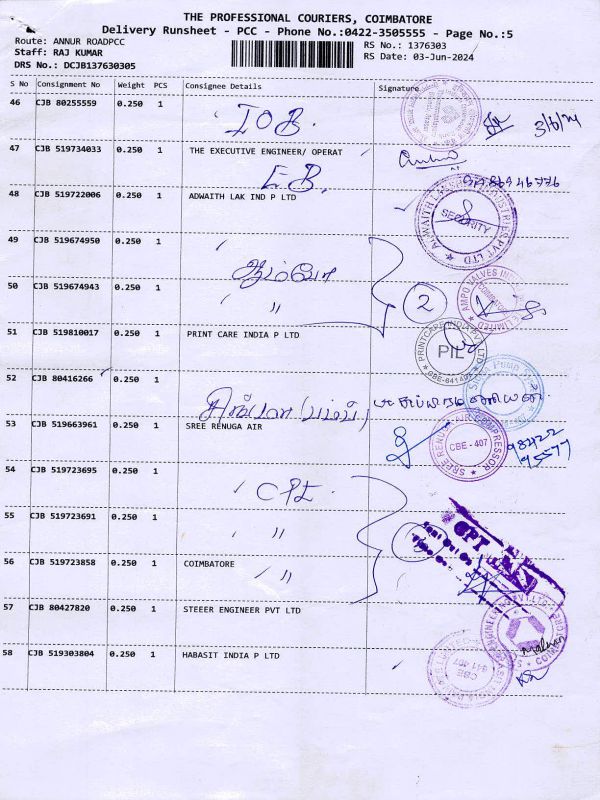 THE PROFESSIONAL COURIERS, COIMBATORE
Delivery Runsheet - PCC - Phone No.:0422-3505555 - Page No.:5
Route: ANNUR ROADPCC
RS No.: 1376303
Staff: RAJ KUMAR
RS Date: 03-Jun-2024
DRS No.: DCJB137630305
S No Consignment No Weight PCS Consignee Details Signature
46 CJB 80255559 0.250 1
IOB. 3/6/24
47 CJB 519734033 0.250 1 THE EXECUTIVE ENGINEER/ OPERAT
EB.
48 CJB 519722006 0.250 1 ADWAITH LAK IND P LTD
SECURITY
49 CJB 519674950 0.250 1
ஆம்போ
50 CJB 519674943 0.250 1
" 2
51 CJB 519810017 0.250 1 PRINT CARE INDIA P LTD
PRINTCARE INDIA PVT LTD
PIL
CBE-641407
52 CJB 80416266 0.250 1
53 CJB 519663961 0.250 1 SREE RENUGA AIR
SREE RENUGA AIR COMPRESSOR
CBE - 407
98422
95577
54 CJB 519723695 0.250 1
CPI
55 CJB 519723691 0.250 1
"
56 CJB 519723858 0.250 1 COIMBATORE
"
57 CJB 80427820 0.250 1 STEEER ENGINEER PVT LTD
58 CJB 519303804 0.250 1 HABASIT INDIA P LTD